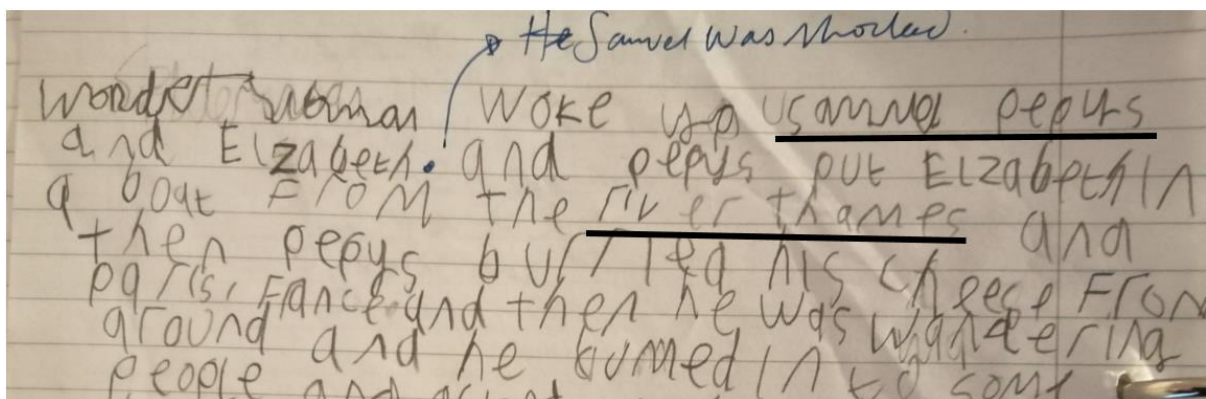 He Samuel Was shocked.
woman woke up samuel pepys
and Elzabeth. and pepys put Elzabeth in
a boat From the river thames and
then pepys burried his cheese From
paris, Fance and then he was wandering
around and he bumed in to some
people and